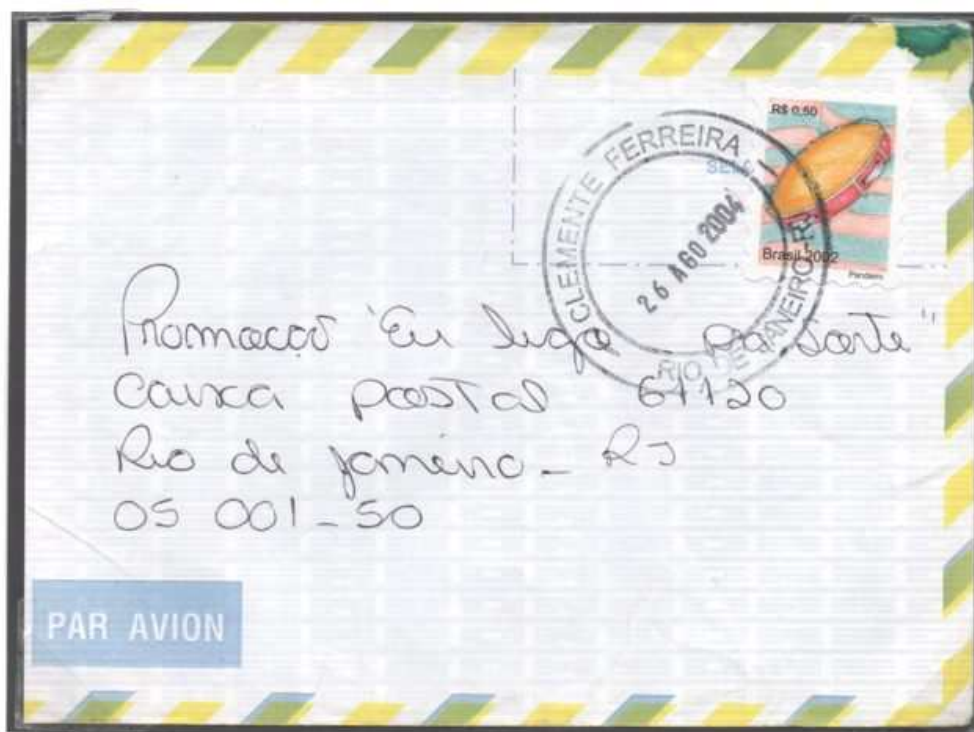 R$ 0,50
SELO
Brasil 2002
Pandeiro
CLEMENTE FERREIRA
26 AGO 2004
RIO DE JANEIRO-RJ
Promoção "Eu ligo sorte"
Caixa postal 61120
Rio de janeiro - RJ
05 001 - 50
PAR AVION